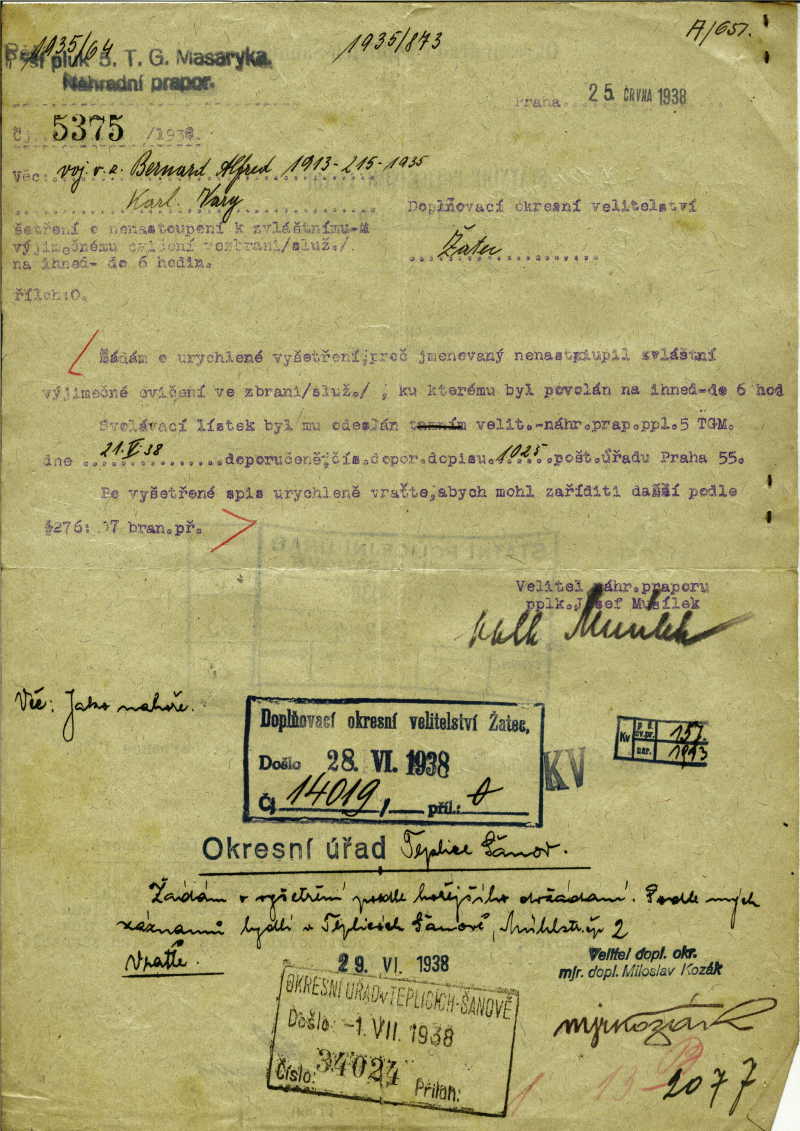 1935/64
1935/873
A/651.
Pěší pluk 5. T. G. Masaryka.
Náhradní prapor.
Praha 25. ČRVNA 1938
Čj. 5375 /1938.
Věc: voj. v z. Bernard Alfred 1913-215-1935
Karl. Vary
Doplňovací okresní velitelství
Žatec
šetření o nenastoupení k zvláštnímu
výjimečnému cvičení vezbrani/služ./
na ihned- do 6 hodin.
Příloh:0.
Žádám o urychlené vyšetření,proč jmenovaný nenastoupil zvláštní
výjimečné cvičení ve zbrani/služ./ , ku kterému byl povolán na ihned-do 6 hod
Svolávací lístek byl mu odeslán velit.-náhr.prap.ppl.5 TGM.
dne 21.V.38 doporučeně,čís.dopor.dopisu.1025 pošt.úřadu Praha 55.
Po vyšetření spis urychleně vraťte,abych mohl zaříditi další podle
§276: 7 bran.př.
Velitel náhr.praporu
pplk.Josef Musílek
Věc: Jako nahoře.
Doplňovací okresní velitelství Žatec,
Došlo 28. VI. 1938
Čj. 14019, příl.: 0
KV
Kv
157.
nar. 1913
Okresní úřad Teplice Šanov.
Žádám o vyšetření podle hořejšího dožádání. Podle mých
záznamů bydlí v Teplicích Šanově, Mühlstr. čp 2
Vraťte.
29. VI. 1938
Velitel dopl. okr.
mjr. dopl. Miloslav Kozák
OKRESNÍ ÚŘAD v TEPLICÍCH-ŠANOVĚ
Došlo: -1. VII. 1938
Číslo: 34024 Příloh:
13
2077